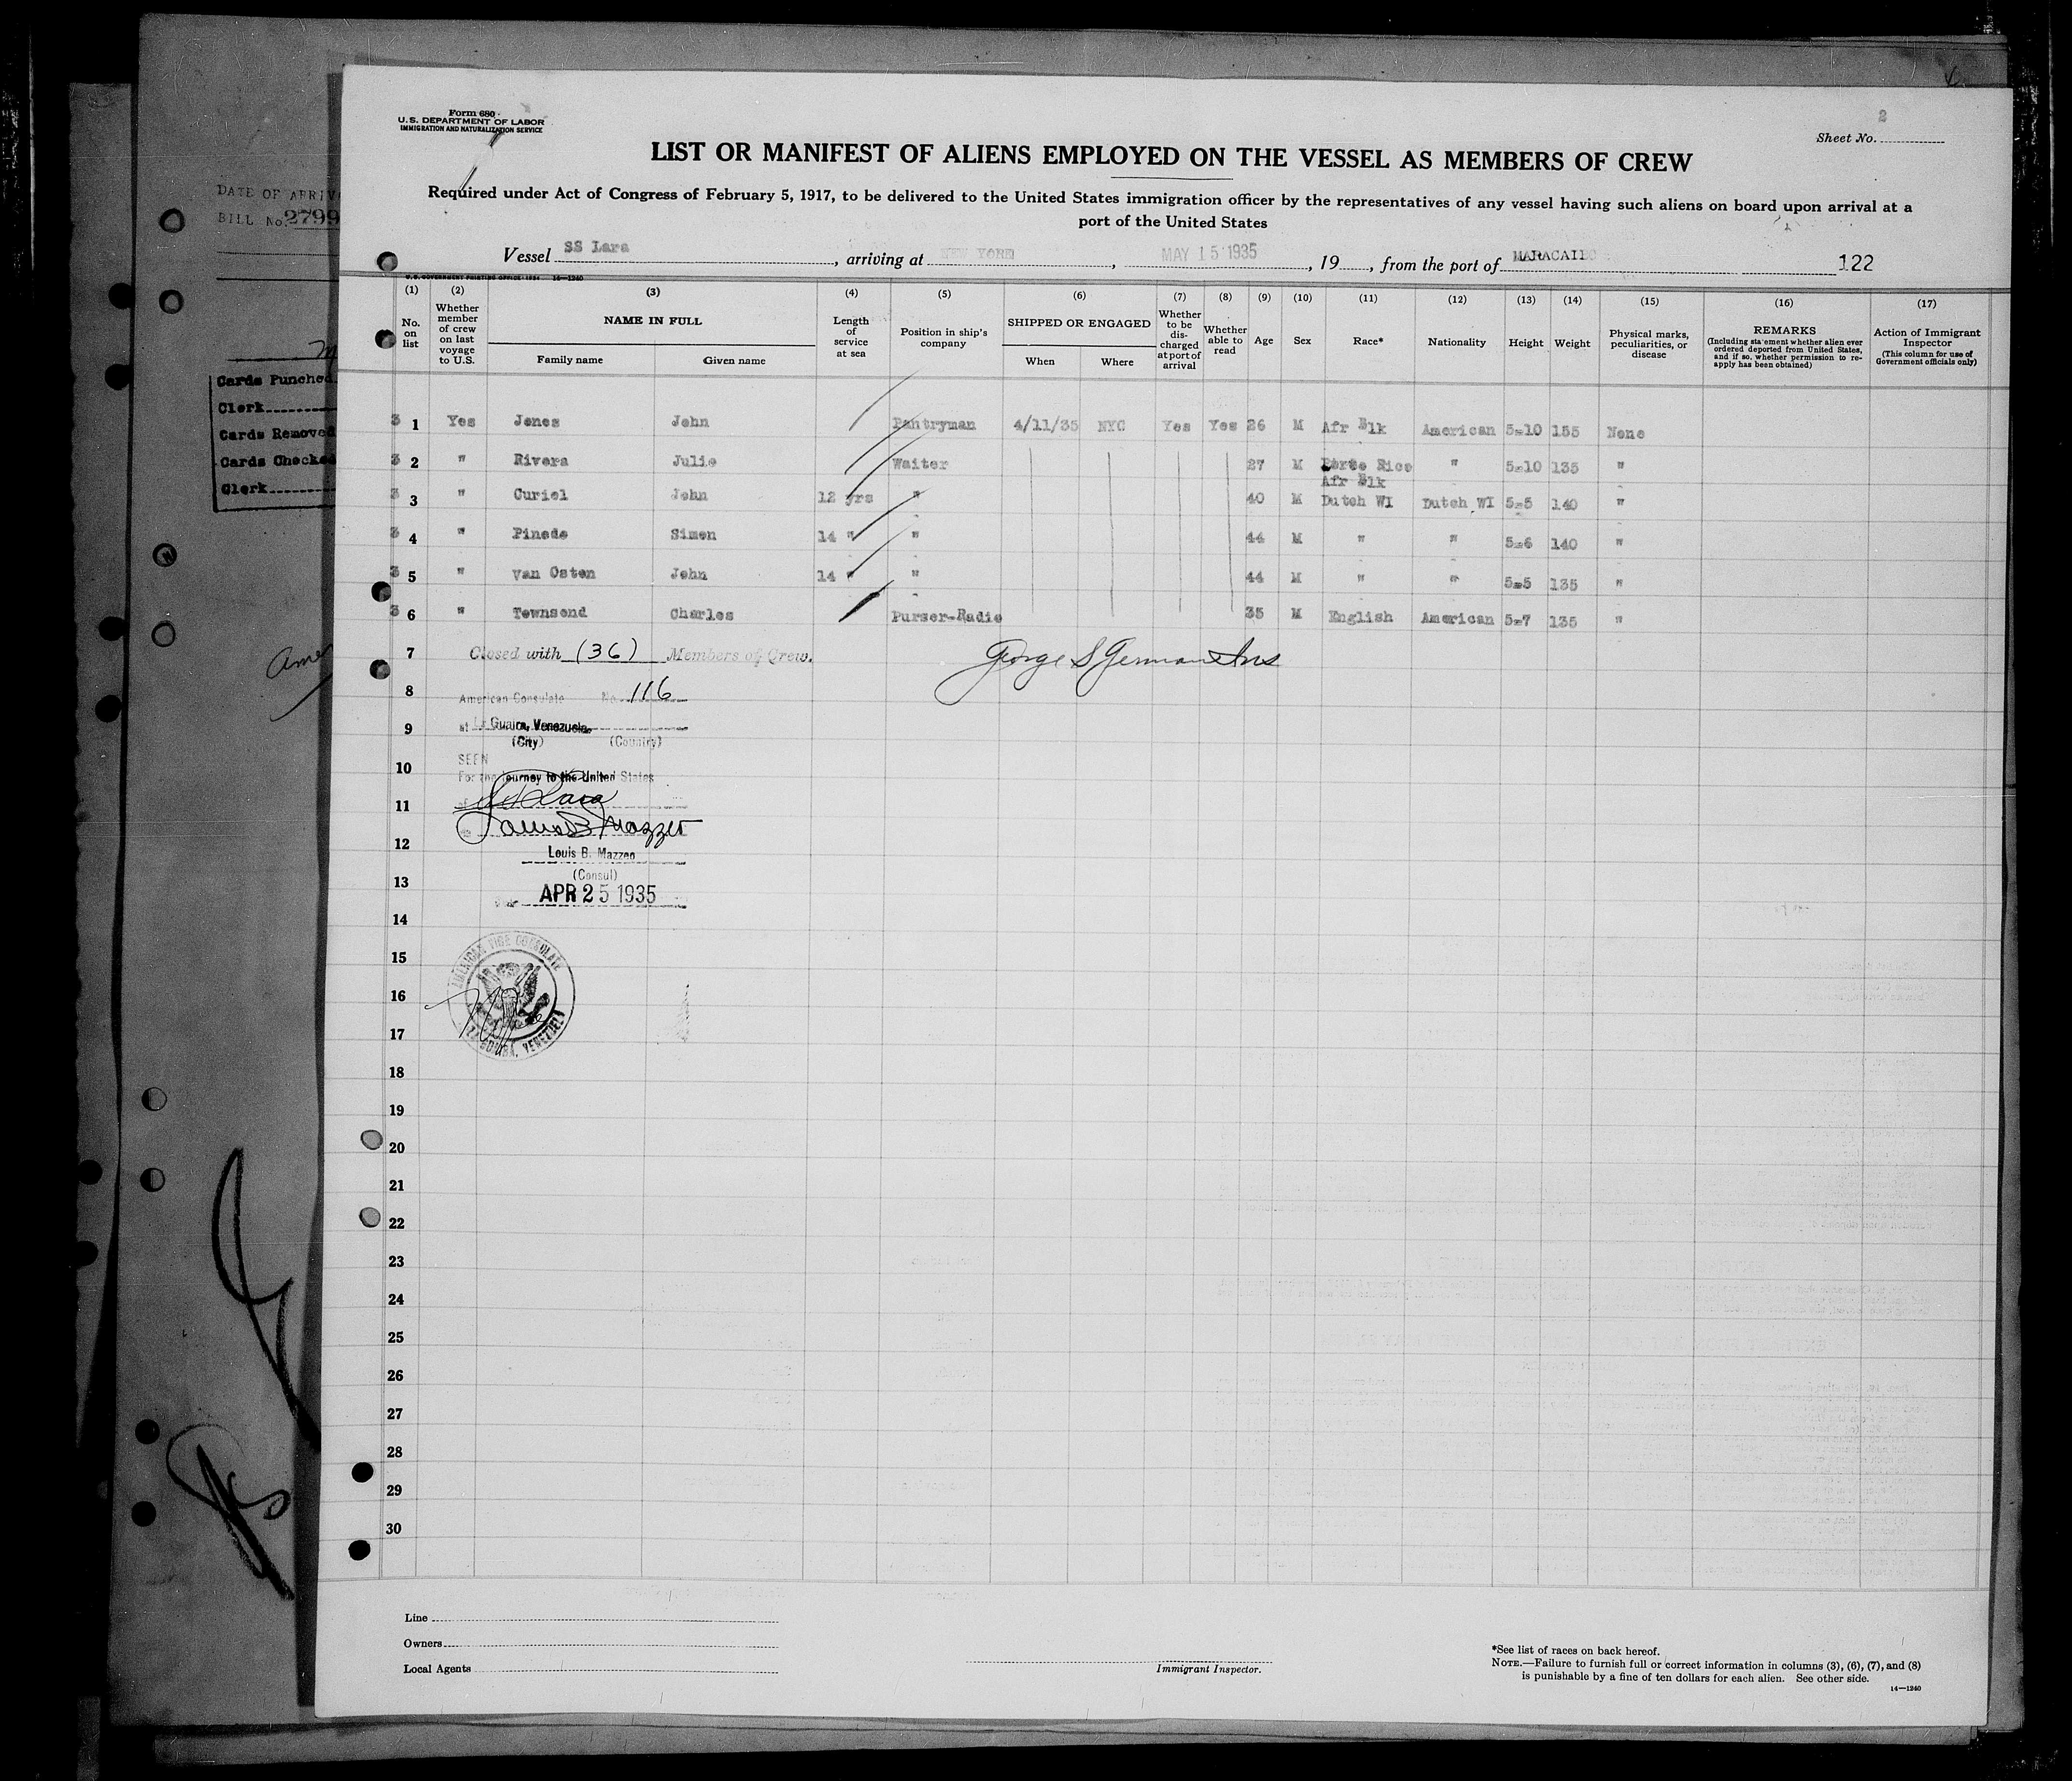 Form 680
U.S. DEPARTMENT OF LABOR
IMMIGRATION AND NATURALIZATION SERVICE
2
Sheet No.
LIST OR MANIFEST OF ALIENS EMPLOYED ON THE VESSEL AS MEMBERS OF CREW
Required under Act of Congress of February 5, 1917, to be delivered to the United States immigration officer by the representatives of any vessel having such aliens on board upon arrival at a
port of the United States
Vessel SS Lara, arriving at NEW YORK, MAY 15 1935, 19, from the port of MARACAIBO 122
U.S. GOVERNMENT PRINTING OFFICE: 1934 14—1240
(1) (2) (3) (4) (5) (6) (7) (8) (9) (10) (11) (12) (13) (14) (15) (16) (17)
No. on list
Whether member of crew on last voyage to U.S.
NAME IN FULL
Family name Given name
Length of service at sea
Position in ship's company
SHIPPED OR ENGAGED
When Where
Whether to be discharged at port of arrival
Whether able to read
Age
Sex
Race*
Nationality
Height
Weight
Physical marks, peculiarities, or disease
REMARKS
(Including statement whether alien ever ordered deported from United States, and if so, whether permission to reapply has been obtained)
Action of Immigrant Inspector
(This column for use of Government officials only)
3 1 Yes Jones John Pantryman 4/11/35 NYC Yes Yes 26 M Afr Blk American 5-10 155 None
3 2 " Rivera Julio Waiter 27 M Porto Rico " 5-10 135 "
Afr Blk
3 3 " Curiel John 12 yrs " 40 M Dutch WI Dutch WI 5-5 140 "
3 4 " Pinedo Simon 14 " " 44 M " " 5-6 140 "
3 5 " Van Osten John 14 " " 44 M " " 5-5 135 "
3 6 " Townsend Charles Purser-Radio 35 M English American 5-7 135 "
7 Closed with (36) Members of Crew. George S German Ins
8 American Consulate No. 116
9 at La Guaira, Venezuela
(City) (Country)
SEEN
10 For the journey to the United States
11 of SS Lara
12 Louis B Mazzeo
Louis B. Mazzeo
(Consul)
13 APR 25 1935
14
15 AMERICAN VICE CONSULATE
16
17 LA GUAIRA, VENEZUELA
18
19
20
21
22
23
24
25
26
27
28
29
30
Line
Owners
Local Agents
Immigrant Inspector.
*See list of races on back hereof.
NOTE.—Failure to furnish full or correct information in columns (3), (6), (7), and (8)
is punishable by a fine of ten dollars for each alien. See other side.
14—1240
DATE OF ARRIV
BILL No. 2799
Cards Punched
Clerk
Cards Removed
Cards Checked
Clerk
Amer